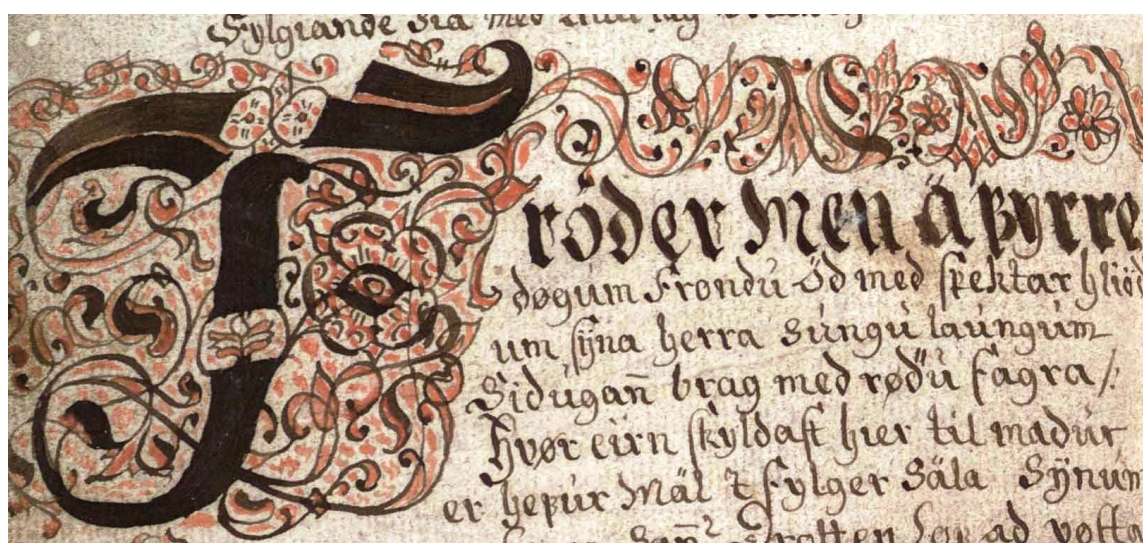 Fylgiande Sia med
Fröder Men ä þyrre
døgum Frondu öd med spektar hliöd
um sÿna herra Súngú laúngúm
Sidúgan̄ brag med rødú fagra /:
Hvør eirn skyldast hier til madúr
er hefúr Mäl ⁊ fylger Säla Sÿnum
rotten ad votta